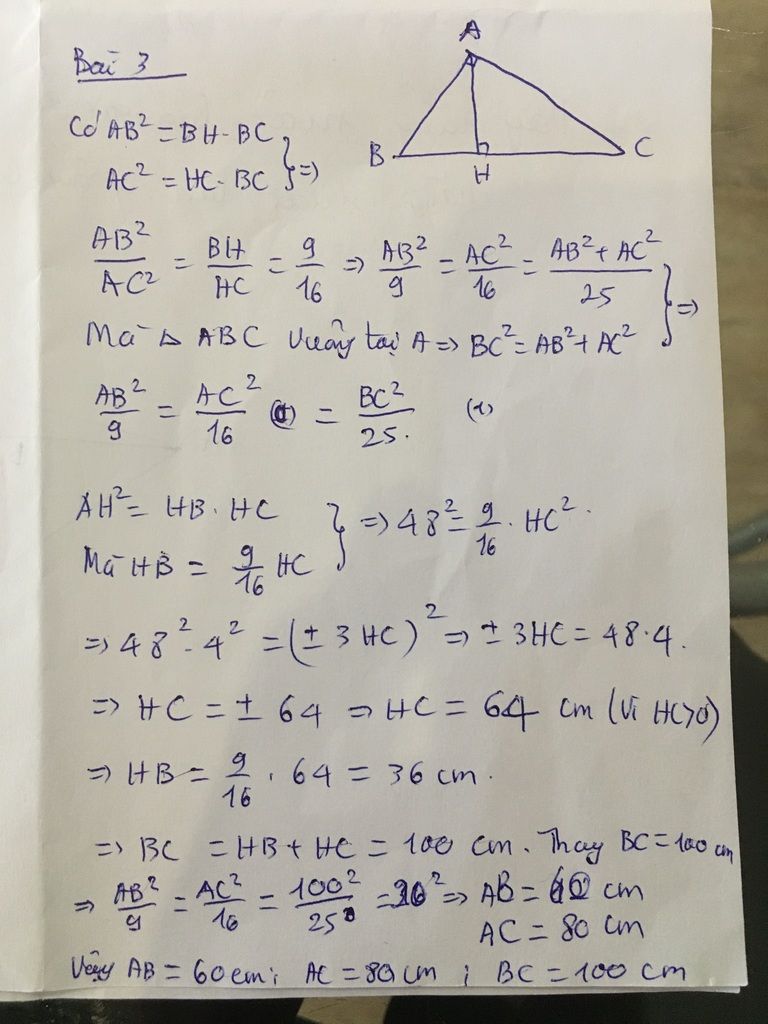 A
Bài 3
B
H
C
Có AB² = BH · BC
AC² = HC · BC } =>
AB²/AC² = BH/HC = 9/16 => AB²/9 = AC²/16 = (AB² + AC²)/25
Mà Δ ABC vuông tại A => BC² = AB² + AC² } =>
AB²/9 = AC²/16 = BC²/25. (1)
AH² = HB · HC
Mà HB = 9/16 HC } => 48² = 9/16 · HC².
=> 48² · 4² = (± 3 HC)² => ± 3HC = 48·4.
=> HC = ± 64 => HC = 64 cm (Vì HC>0)
=> HB = 9/16 · 64 = 36 cm.
=> BC = HB + HC = 100 cm. Thay BC = 100 cm
=> AB²/9 = AC²/16 = 100²/25 = 20² => AB = 60 cm
AC = 80 cm
Vậy AB = 60cm; AC = 80 cm ; BC = 100 cm